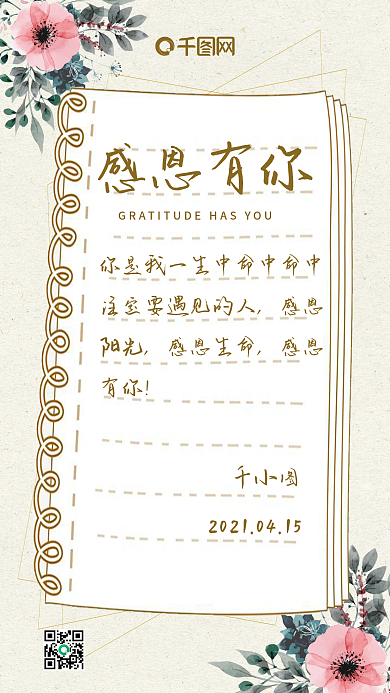 千图网
感恩有你
GRATITUDE HAS YOU
你是我一生中命中命中
注定要遇见的人，感恩
阳光，感恩生命，感恩
有你！
千小图
2021.04.15